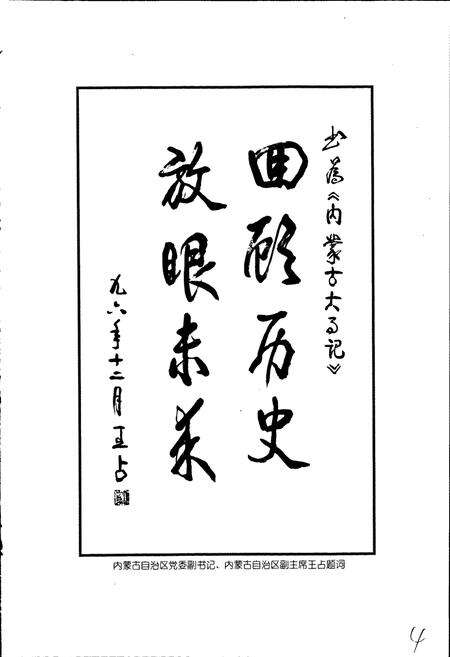 书为《内蒙古大事记》
回顾历史
放眼未来
九六年十二月王占
内蒙古自治区党委副书记、内蒙古自治区副主席王占题词
4